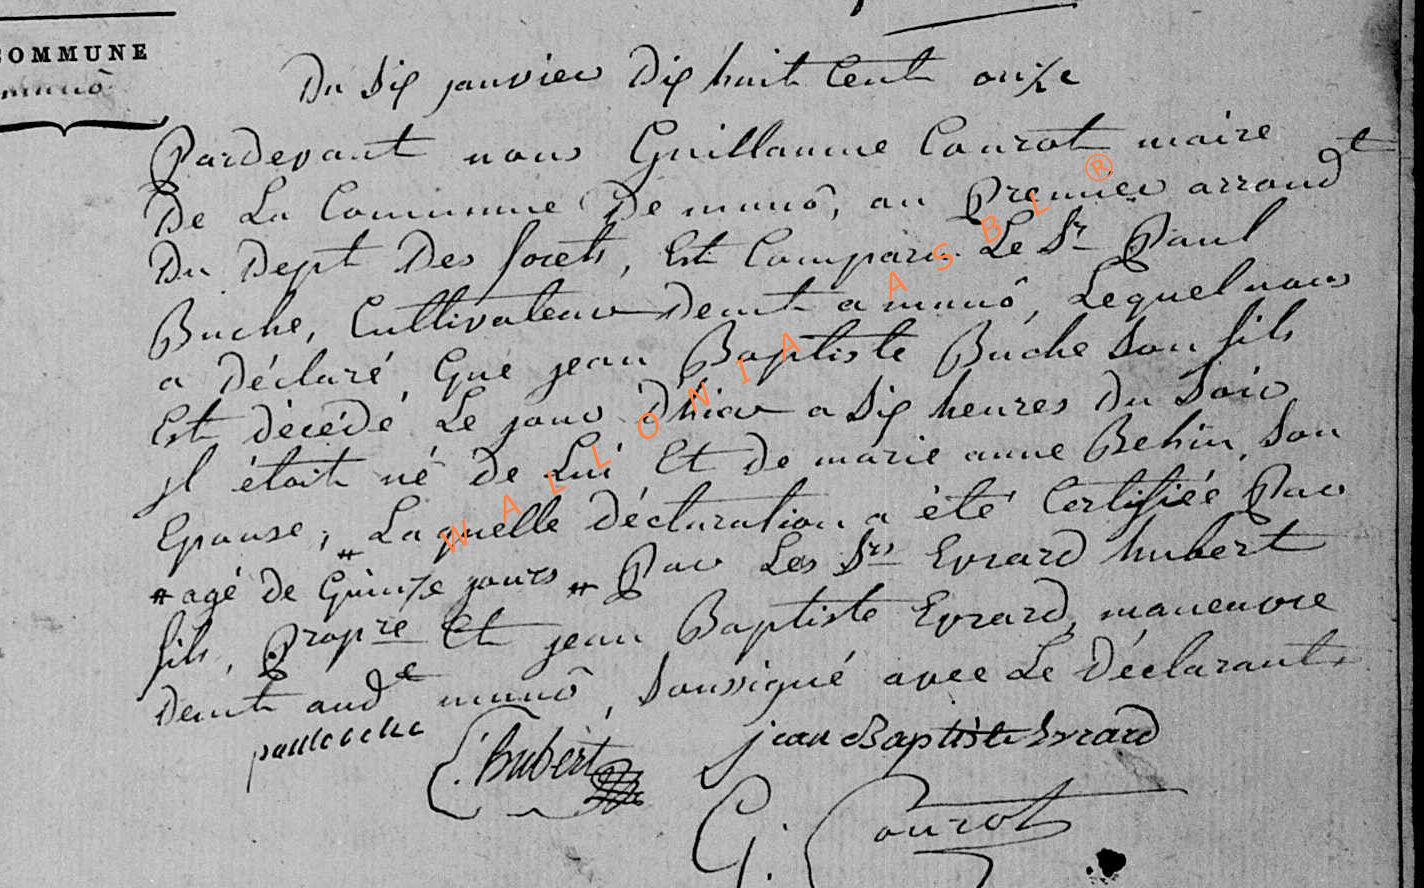 COMMUNE
munô
Du Six janvier Dix huit Cent onze
Pardevant nous Guillaume Courot maire
De La Commune De munô, au Premier arrondt
Du Dept Des forets, Est Comparu Le Sr Paul
Buche, Cultivateur Demt a munô, Lequel nous
a Déclaré, Que jean Baptiste Buche Son fils
Est décédé Le jour D'hier a Six heures Du Soir
jl étoit né De Lui Et De marie anne Behin, Son
Epouse, # Laquelle Déclaration a été Certifiée Par
# agé de Quinze jours # Par Les Srs Evrard hubert
fils, Propre Et jean Baptiste Evrard, maneuvre
Demt audt munô, Soussigné avec Le Déclarant
paul buche
E. hubert
jean Baptiste Evrard
G. Courot
WALLONIA ASBL ®